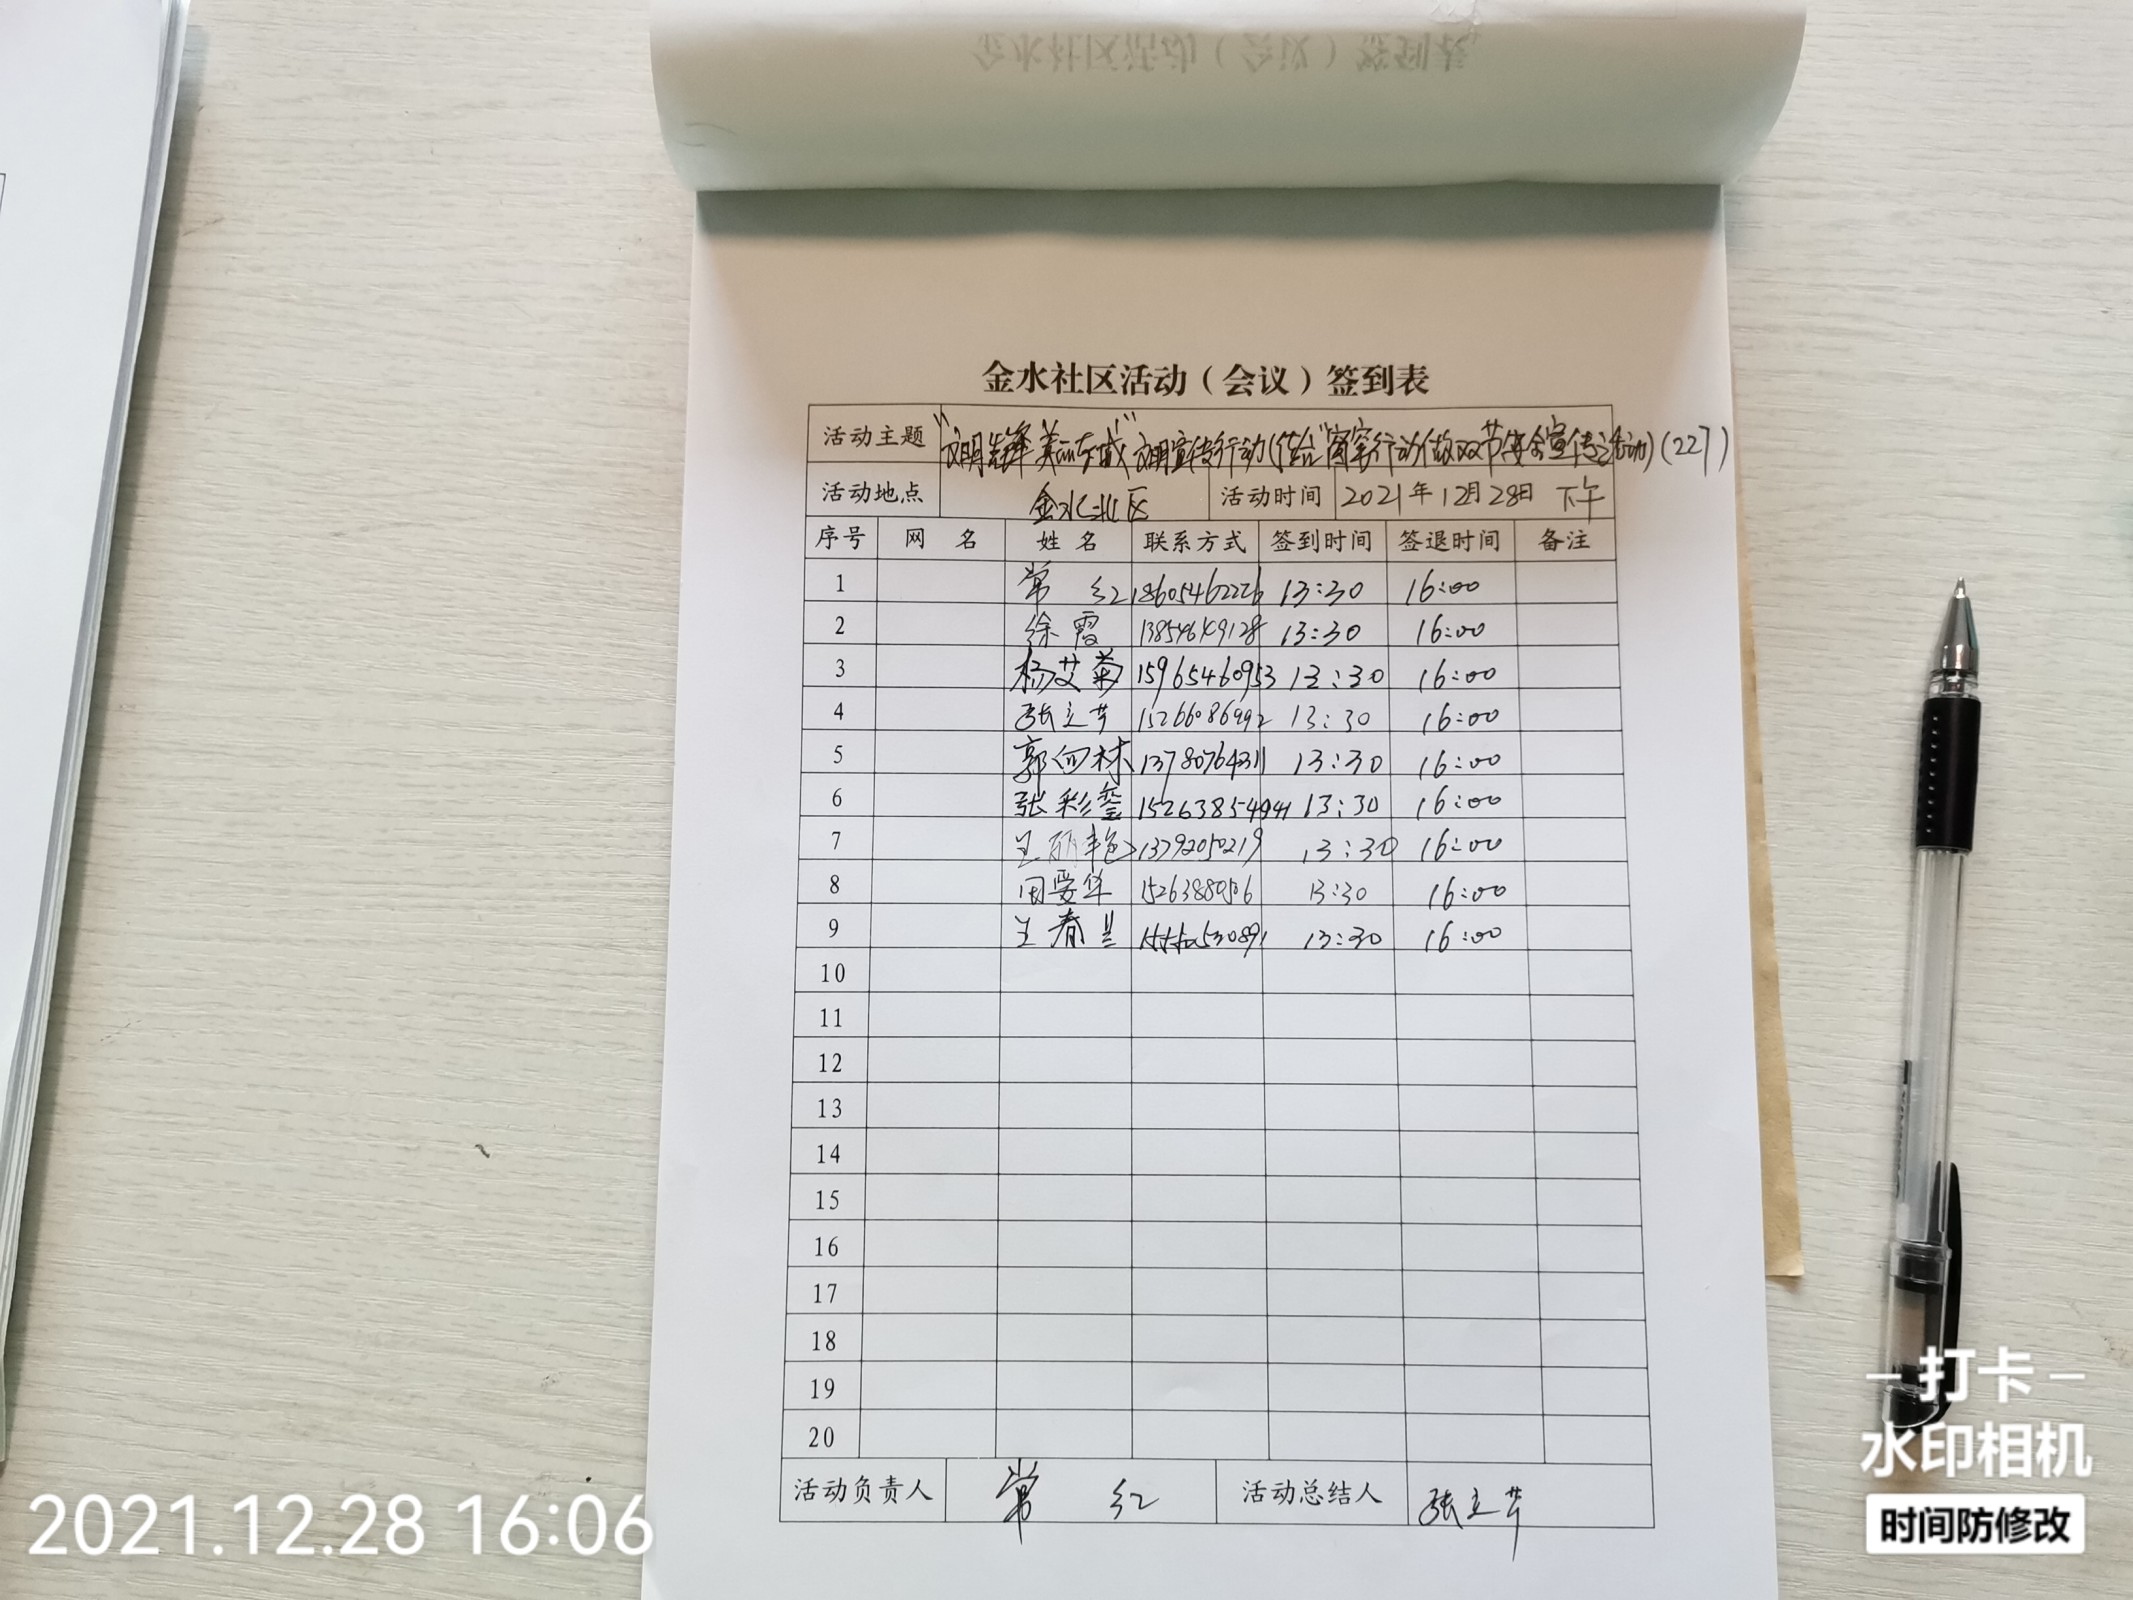 金水社区活动（会议）签到表
活动主题 “文明先锋 美丽东城”文明宣传行动（结合“商家行动做双节安全宣传活动）(227)
活动地点 金水北区 活动时间 2021年12月28日 下午
序号 网 名 姓 名 联系方式 签到时间 签退时间 备注
1 常 红 18605462226 13:30 16:00
2 徐霞 13:30 16:00
3 杨艾菊 15965460953 13:30 16:00
4 张立芹 15266086992 13:30 16:00
5 郭向林 13780764311 13:30 16:00
6 张彩銮 15263854941 13:30 16:00
7 王丽艳 13792050219 13:30 16:00
8 田爱华 13:30 16:00
9 王春兰 13:30 16:00
10
11
12
13
14
15
16
17
18
19
20
活动负责人 常 红 活动总结人 张立芹
2021.12.28 16:06
打卡
水印相机
时间防修改